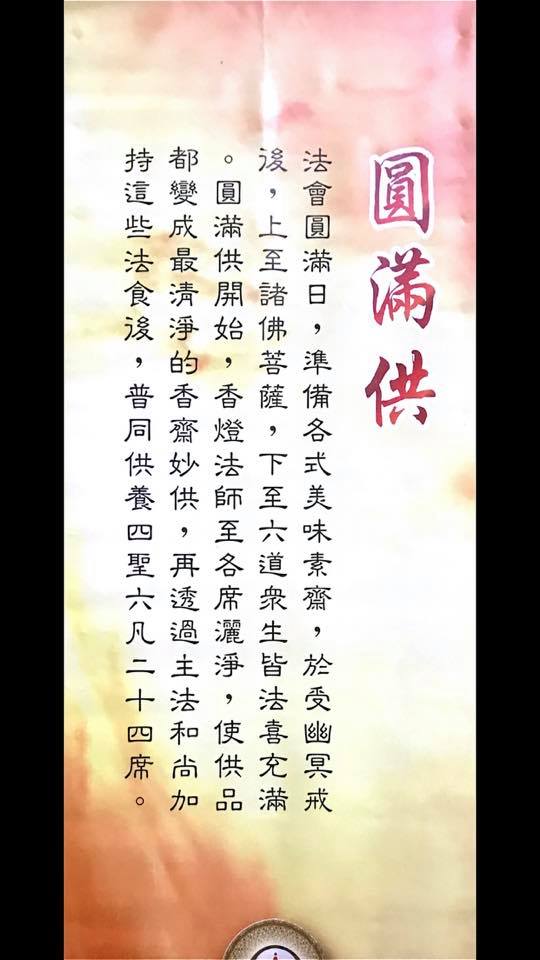 圓滿供
法會圓滿日，準備各式美味素齋，於受幽冥戒
後，上至諸佛菩薩，下至六道衆生皆法喜充滿
。圓滿供開始，香燈法師至各席灑淨，使供品
都變成最清淨的香齋妙供，再透過主法和尚加
持這些法食後，普同供養四聖六凡二十四席。